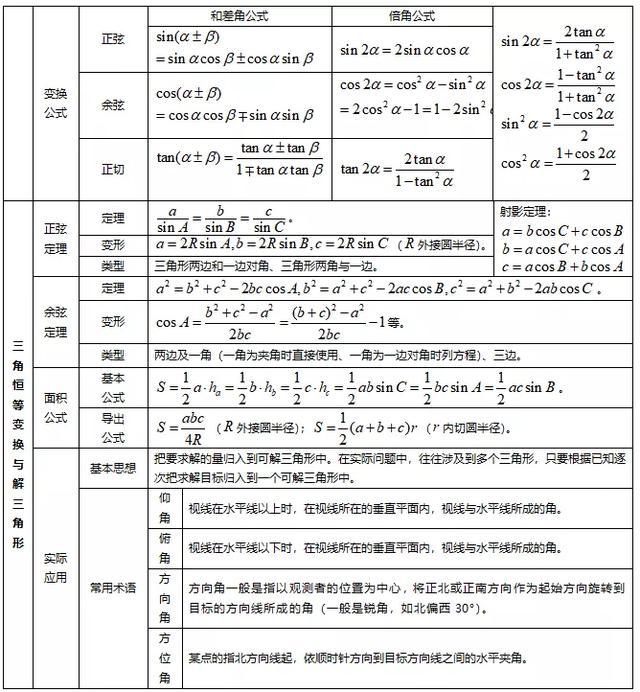 三角恒等变换与解三角形
变换公式
和差角公式
倍角公式
正弦
sin(α±β)
=sin α cos β±cos α sin β
sin 2α=2sin α cos α
余弦
cos(α±β)
=cos α cos β∓sin α sin β
cos 2α=cos² α−sin² α
=2cos² α−1=1−2sin²
正切
tan(α±β)=(tan α±tan β)/(1∓tan α tan β)
tan 2α=2tan α/(1−tan² α)
sin 2α=2tan α/(1+tan² α)
cos 2α=(1−tan² α)/(1+tan² α)
sin² α=(1−cos 2α)/2
cos² α=(1+cos 2α)/2
正弦定理
定理
a/sin A=b/sin B=c/sin C。
变形
a=2R sin A,b=2R sin B,c=2R sin C（R外接圆半径）。
类型
三角形两边和一边对角、三角形两角与一边。
射影定理：
a=b cos C+c cos B
b=a cos C+c cos A
c=a cos B+b cos A
余弦定理
定理
a²=b²+c²−2bc cos A,b²=a²+c²−2ac cos B,c²=a²+b²−2ab cos C。
变形
cos A=(b²+c²−a²)/2bc=((b+c)²−a²)/2bc−1等。
类型
两边及一角（一角为夹角时直接使用、一角为一边对角时列方程）、三边。
面积公式
基本公式
S=1/2 a·hₐ=1/2 b·h_b=1/2 c·h_c=1/2 ab sin C=1/2 bc sin A=1/2 ac sin B。
导出公式
S=abc/4R（R外接圆半径）；S=1/2(a+b+c)r（r内切圆半径）。
实际应用
基本思想
把要求解的量归入到可解三角形中。在实际问题中，往往涉及到多个三角形，只要根据已知逐
次把求解目标归入到一个可解三角形中。
常用术语
仰角
视线在水平线以上时，在视线所在的垂直平面内，视线与水平线所成的角。
俯角
视线在水平线以下时，在视线所在的垂直平面内，视线与水平线所成的角。
方向角
方向角一般是指以观测者的位置为中心，将正北或正南方向作为起始方向旋转到
目标的方向线所成的角（一般是锐角，如北偏西30°）。
方位角
某点的指北方向线起，依顺时针方向到目标方向线之间的水平夹角。